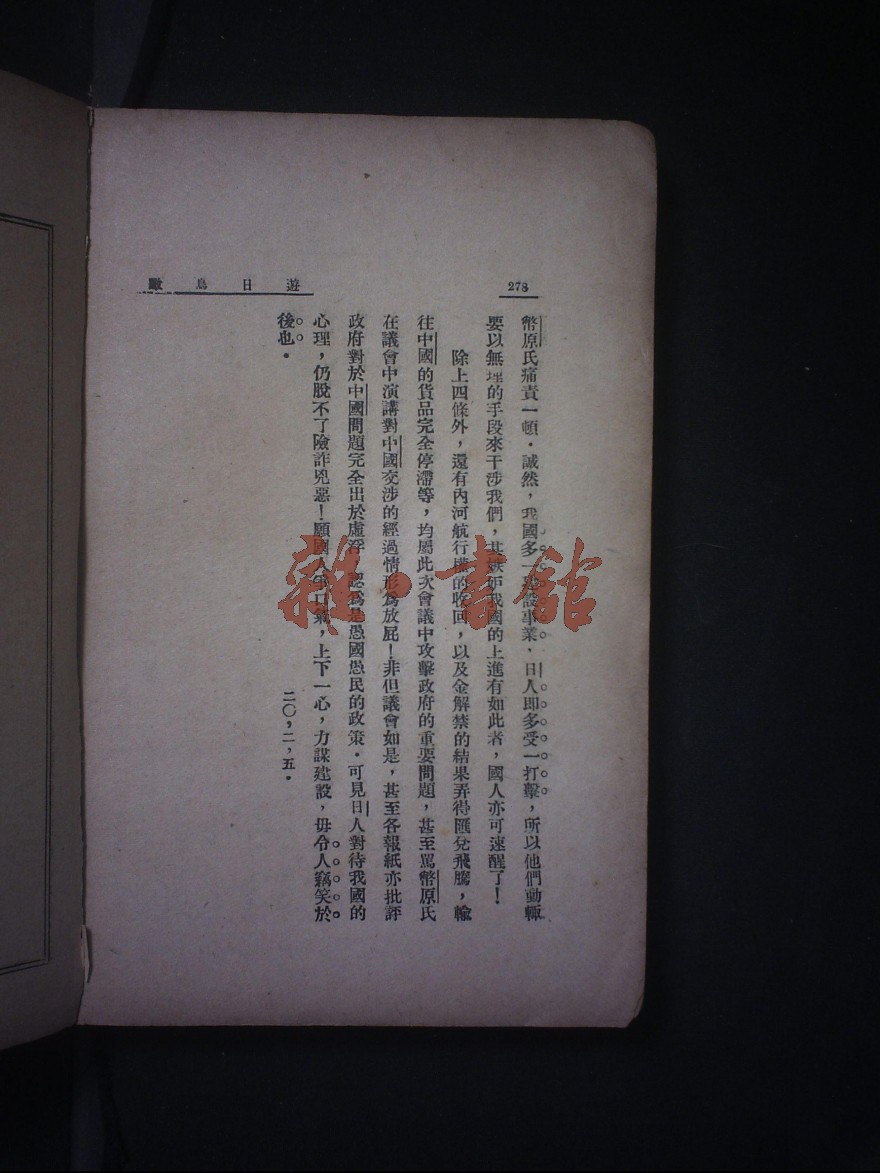 278
遊日鳥瞰
幣原氏痛責一頓．誠然，我國多一建設事業，日人即多受一打擊，所以他們動輒
要以無理的手段來干涉我們，其嫉妒我國的上進有如此者，國人亦可速醒了！
除上四條外，還有內河航行權的收回，以及金解禁的結果弄得匯兌飛騰，輸
往中國的貨品完全停滯等，均屬此次會議中攻擊政府的重要問題，甚至罵幣原氏
在議會中演講對中國交涉的經過情形為放屁！非但議會如是，甚至各報紙亦批評
政府對於中國問題完全出於虛浮，認為是愚國愚民的政策．可見日人對待我國的
心理，仍脫不了險詐兇惡！願國人口氣，上下一心，力謀建設，毋令人竊笑於
後也．
二〇，二，五．
雜·書館